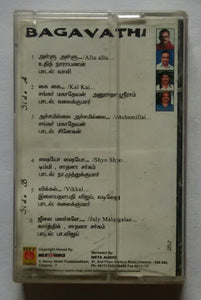 BAGAVATHI
Side. A
1. அள்ளு அள்ளு..../Allu allu...
உதித் நாராயணன்
பாடல்: வாலி
கை கை..../Kai Kai...
சங்கர் மகாதேவன் அனுராதா ஸ்ரீராம்
பாடல்: கலைக்குமார்
அச்சமில்லை அச்சமில்லை.../Atchamillai
சங்கர் மகாதேவன்
பாடல்: சினேகன்
Side. B
ஷையோ ஷையோ.../Shyo Shyo...
டிம்மி, சாதனா சர்கம்
பாடல்: கலைக்குமார்
விக்கல்..../Vikkal...
பாடல்: கலைக்குமார்
ஜூலை மலர்களே.../July Malargalae...
கார்த்திக், சாதனா சர்கம்
பாடல்: பா.விஜய்
Copyright Owned By:
Marketed By:
META AUDIO